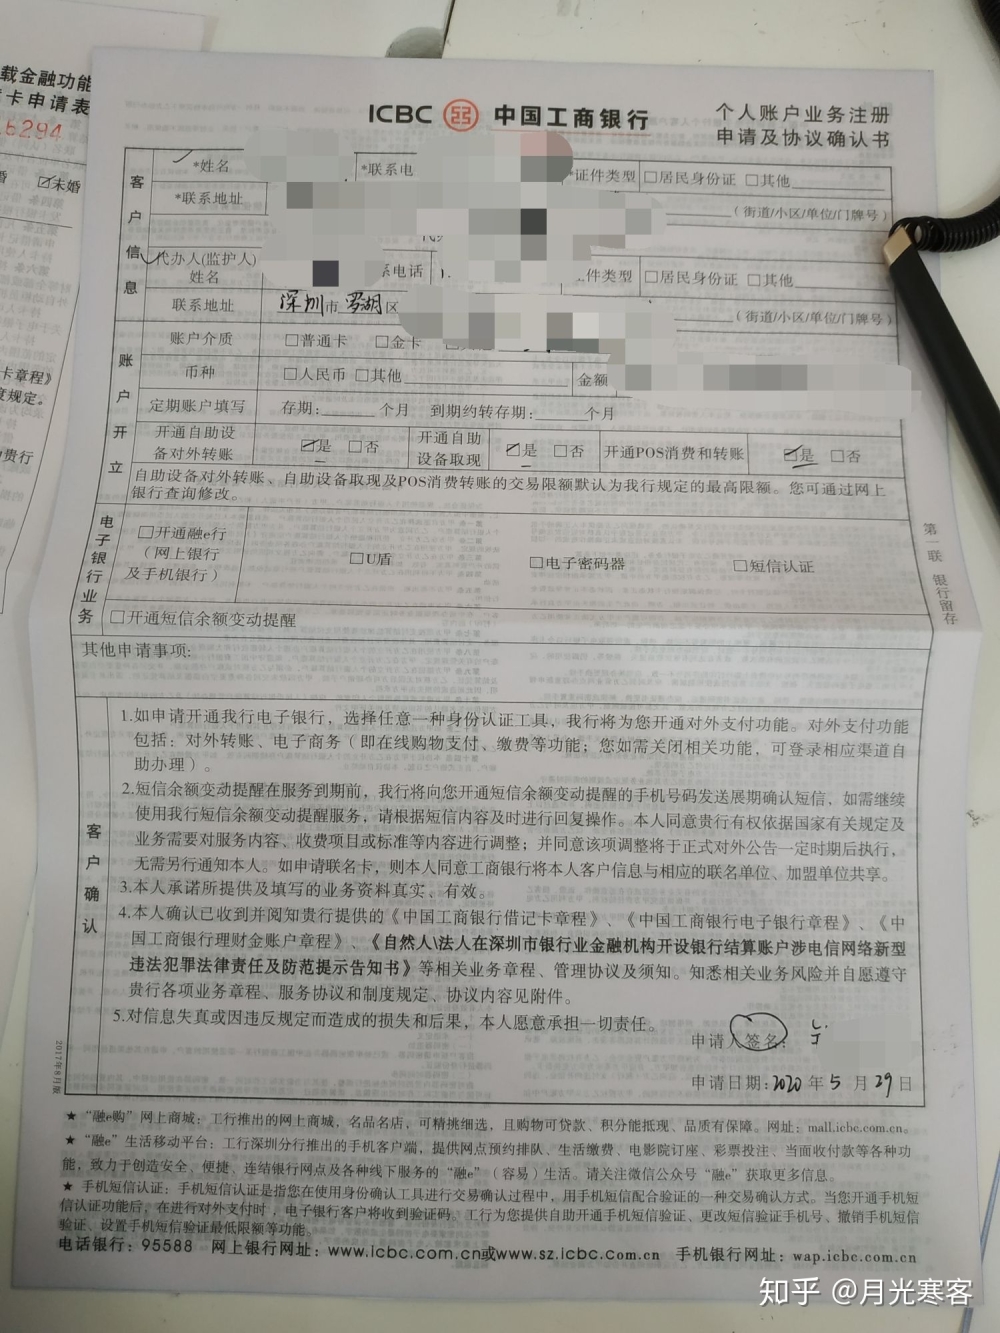 载金融功能
卡申请表
15294
☑未婚
卡章程》
度规定。
贵行
ICBC 中国工商银行
个人账户业务注册
申请及协议确认书
客户信息
*姓名 *联系电 *证件类型 □居民身份证 □其他
*联系地址 (街道/小区/单位/门牌号)
代办人(监护人)姓名 系电话 件类型 □居民身份证 □其他
联系地址 深圳市 罗湖区 (街道/小区/单位/门牌号)
账户开立
账户介质 □普通卡 □金卡
币种 □人民币 □其他 金额
定期账户填写 存期: 个月 到期约转存期: 个月
开通自助设备对外转账 ☑是 □否 开通自助设备取现 ☑是 □否 开通POS消费和转账 ☑是 □否
自助设备对外转账、自助设备取现及POS消费转账的交易限额默认为我行规定的最高限额。您可通过网上
银行查询修改。
电子银行业务
□开通融e行
(网上银行
及手机银行)
□U盾 □电子密码器 □短信认证
□开通短信余额变动提醒
其他申请事项:
客户确认
1.如申请开通我行电子银行，选择任意一种身份认证工具，我行将为您开通对外支付功能。对外支付功能
包括：对外转账、电子商务（即在线购物支付、缴费等功能；您如需关闭相关功能，可登录相应渠道自
助办理）。
2.短信余额变动提醒在服务到期前，我行将向您开通短信余额变动提醒的手机号码发送展期确认短信，如需继续
使用我行短信余额变动提醒服务，请根据短信内容及时进行回复操作。本人同意贵行有权依据国家有关规定及
业务需要对服务内容、收费项目或标准等内容进行调整；并同意该项调整将于正式对外公告一定时期后执行，
无需另行通知本人。如申请联名卡，则本人同意工商银行将本人客户信息与相应的联名单位、加盟单位共享。
3.本人承诺所提供及填写的业务资料真实、有效。
4.本人确认已收到并阅知贵行提供的《中国工商银行借记卡章程》、《中国工商银行电子银行章程》、《中
国工商银行理财金账户章程》、《自然人\法人在深圳市银行业金融机构开设银行结算账户涉电信网络新型
违法犯罪法律责任及防范提示告知书》等相关业务章程、管理协议及须知。知悉相关业务风险并自愿遵守
贵行各项业务章程、服务协议和制度规定、协议内容见附件。
5.对信息失真或因违反规定而造成的损失和后果，本人愿意承担一切责任。
申请人签名：
申请日期:2020年5月29日
第一联 银行留存
2017年8月版
★ “融e购”网上商城：工行推出的网上商城，名品名店，可精挑细选，且购物可贷款、积分能抵现、品质有保障。网址：mall.icbc.com.cn。
★ “融e”生活移动平台：工行深圳分行推出的手机客户端，提供网点预约排队、生活缴费、电影院订座、彩票投注、当面收付款等各种功
能，致力于创造安全、便捷、连结银行网点及各种线下服务的“融e”（容易）生活。请关注微信公众号“融e”获取更多信息。
★ 手机短信认证：手机短信认证是指您在使用身份确认工具进行交易确认过程中，用手机短信配合验证的一种交易确认方式。当您开通手机短
信认证功能后，在进行对外支付时，电子银行客户将收到验证码。工行为您提供自助开通手机短信验证、更改短信验证手机号、撤销手机短信
验证、设置手机短信验证最低限额等功能。
电话银行：95588 网上银行网址：www.icbc.com.cn或www.sz.icbc.com.cn 手机银行网址：wap.icbc.com.cn
知乎 @月光寒客